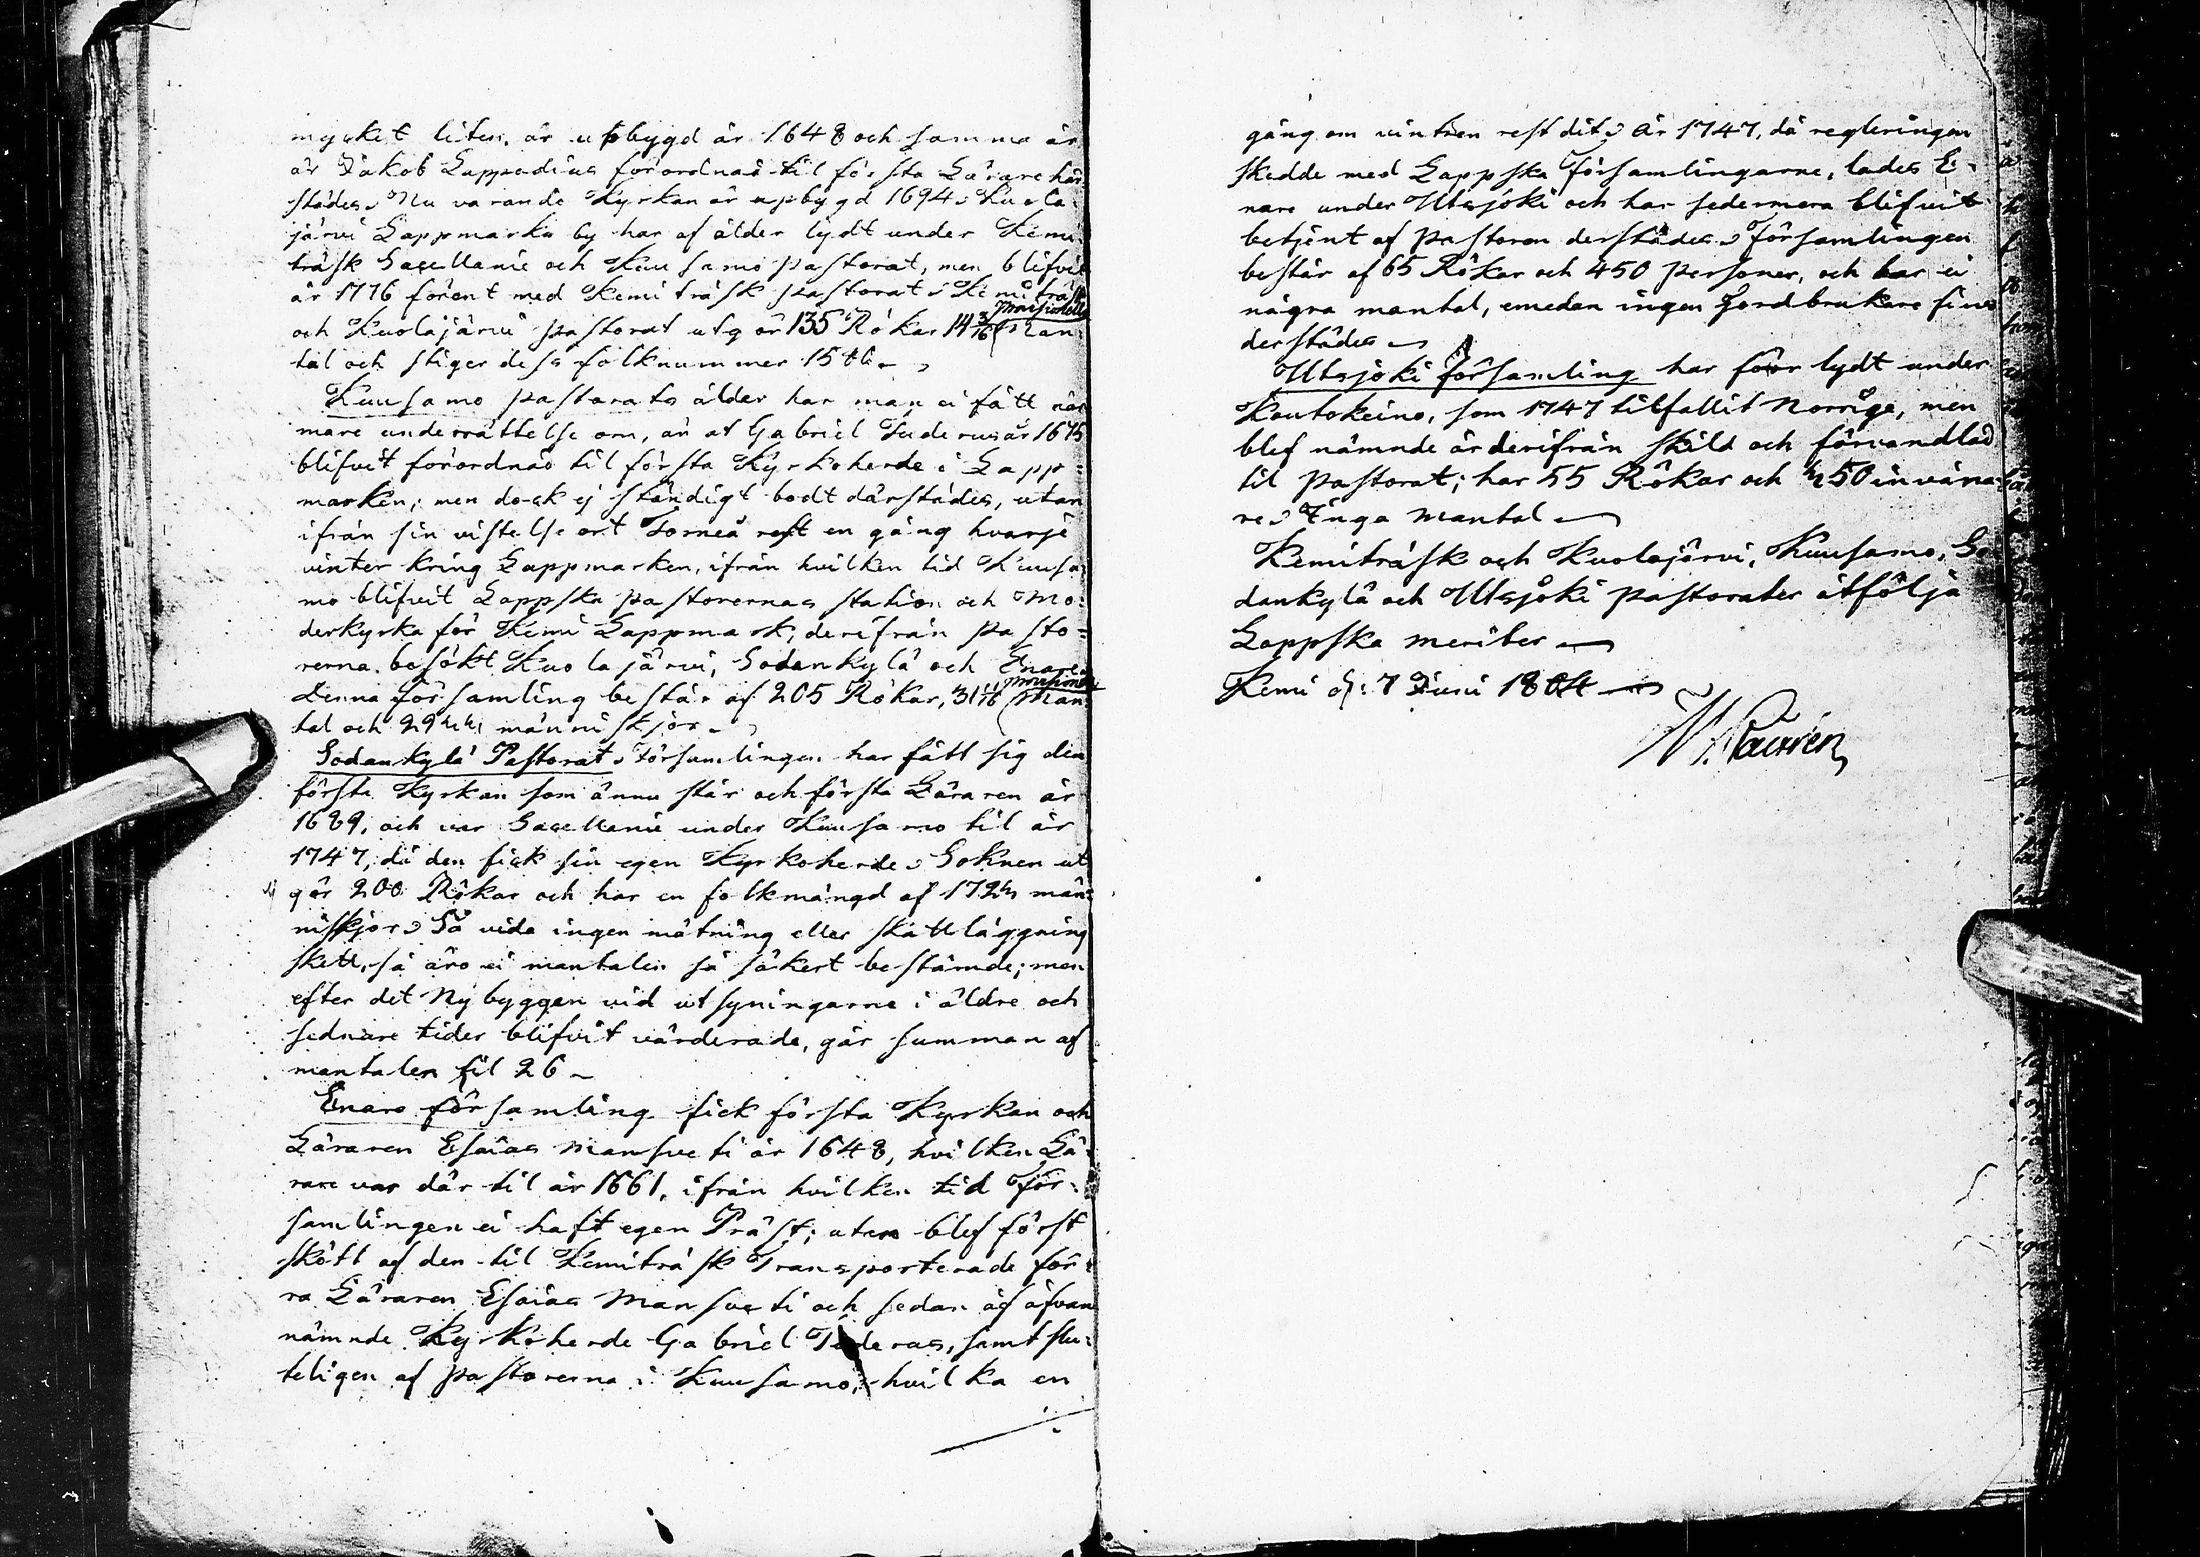 mycket liten, är upbygd år 1648 och samma år
är Jakob Lappodius förordnad til första Lärare här
städes. Nu varande Kyrkan är upbygd 1694. Kuola
järvi Lappmarks by har af ålder lydt under Kemi
träsk Sacellanie och Kuusamo pastorat, men blifvit
år 1776 förent med Kemiträsk pastorat. Kemiträsk
och Kuolajärvi pastorat utgör 135 Rökar 14 3/16 provisionella Man
tal och stiger dess folknummer
Kuusamo pastorats ålder har man ei fått när
mare underrättelse om, än at Gabriel Tuderus år 1675
blifvit förordnad til första Kyrkoherde i Lapp=
marken; men dock ej ständigt bodt därstädes, utan
ifrån sin vistelse ort Torneå rest en gång hvarje
vinter kring Lappmarken, ifrån hvilken tid Kuusa
mo blifvit Lappska pastorernas station och Mo=
derkyrka för Kemi Lappmark, derifrån pasto=
rerna besökt Kuolajärvi, Sodankylä och Enare.
Denna församling består af 205 Rökar, 31 provisionella Man
tal och människjor.
Sodankylä Pastorat. Församlingen har fått sig den
första Kyrkan som ännu står och första Läraren år
1689, och var Sacellanie under Kuusamo til år
1747, då den fick sin egen Kyrkoherde. Soknen ut
gör 200 Rökar och har en folkmängd af 1724 män=
niskjor. Så vida ingen mätning eller skattläggning
skett, så äro ei mantalen så säkert bestämde; men
efter det Nybyggen vid utsyningarne i äldre och
sednare tider blifvit värderade, går summan af
mantalen til 26
Enare församling fick första Kyrkan och
Läraren Esaias Mansveti år 1648, hvilken Lä
rare var där til år 1661, ifrån hvilken tid För=
samlingen ei haft egen Präst; utan blef först
skött af den til Kemiträsk Transporterade för=
ra Läraren Esaias Mansveti och sedan af åfvan
nämnde Kyrkoherde Gabriel Tuderus, samt slu=
teligen af pastorerna i Kuusamo, hvilka en
gång om vintren rest dit. År 1747, då regleringen
skedde med Lappska Församlingarne, lades E=
nare under Utsjoki och har sedermera blifvit
betjent af Pastoren derstädes. Församlingen
består af 65 Rökar och 450 personer, och har ei
några mantal, emedan ingen Jordbrukare fins
derstädes
Utsjoki församling har förr lydt under
Kautokeino, som 1747 tilfallit Norrige, men
blef nämnde år derifrån skild och förvandlad
til pastorat; har 55 Rökar och 450 invåna
re. Inga mantal
Kemiträsk och Kuolajärvi, Kuusamo, So
dankylä och Utsjoki pastorater åtfölja
Lappska meriter
Kemi d. 7 Juni 1804